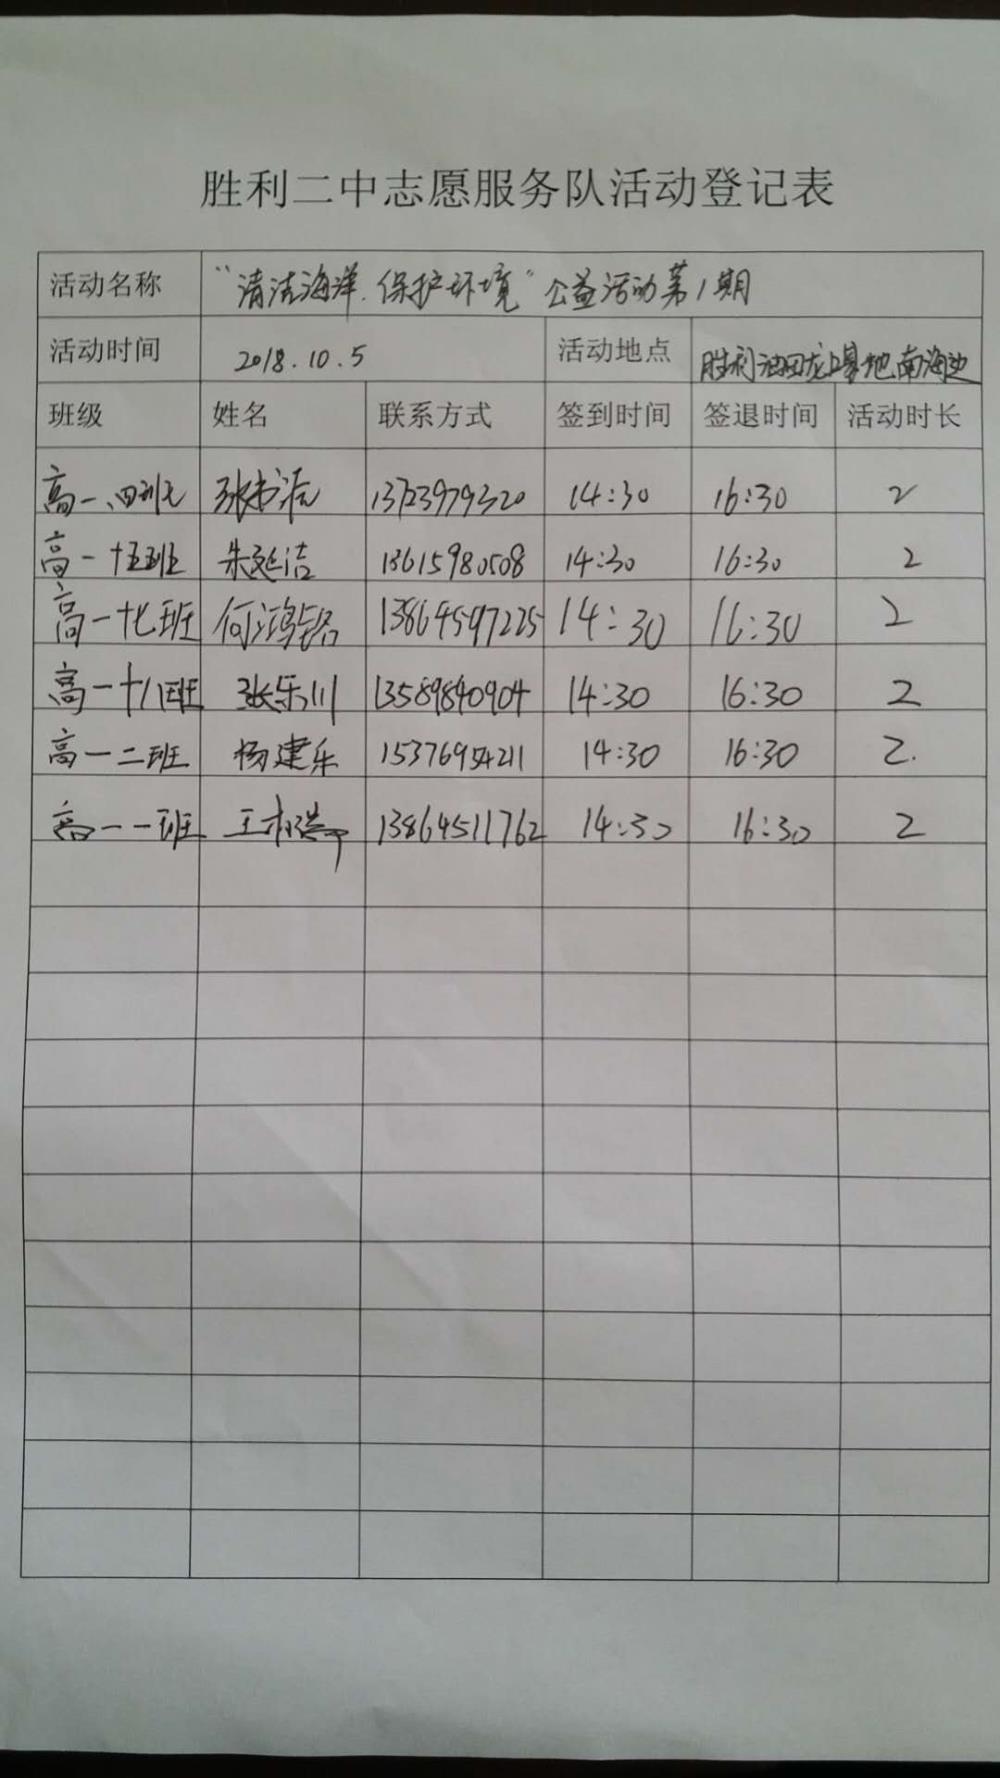 胜利二中志愿服务队活动登记表
活动名称 "清洁海洋.保护环境"公益活动第1期
活动时间 2018.10.5 活动地点 胜利油田龙口基地南海边
班级 姓名 联系方式 签到时间 签退时间 活动时长
高一.四班 张书浩 13723979320 14:30 16:30 2
高一十五班 朱延洁 13615980508 14:30 16:30 2
高一十七班 何鸿铭 13864597225 14:30 16:30 2
高一十八班 张乐川 13589840904 14:30 16:30 2
高一二班 杨建乐 15376954211 14:30 16:30 2.
高一一班 王 13864511762 14:30 16:30 2